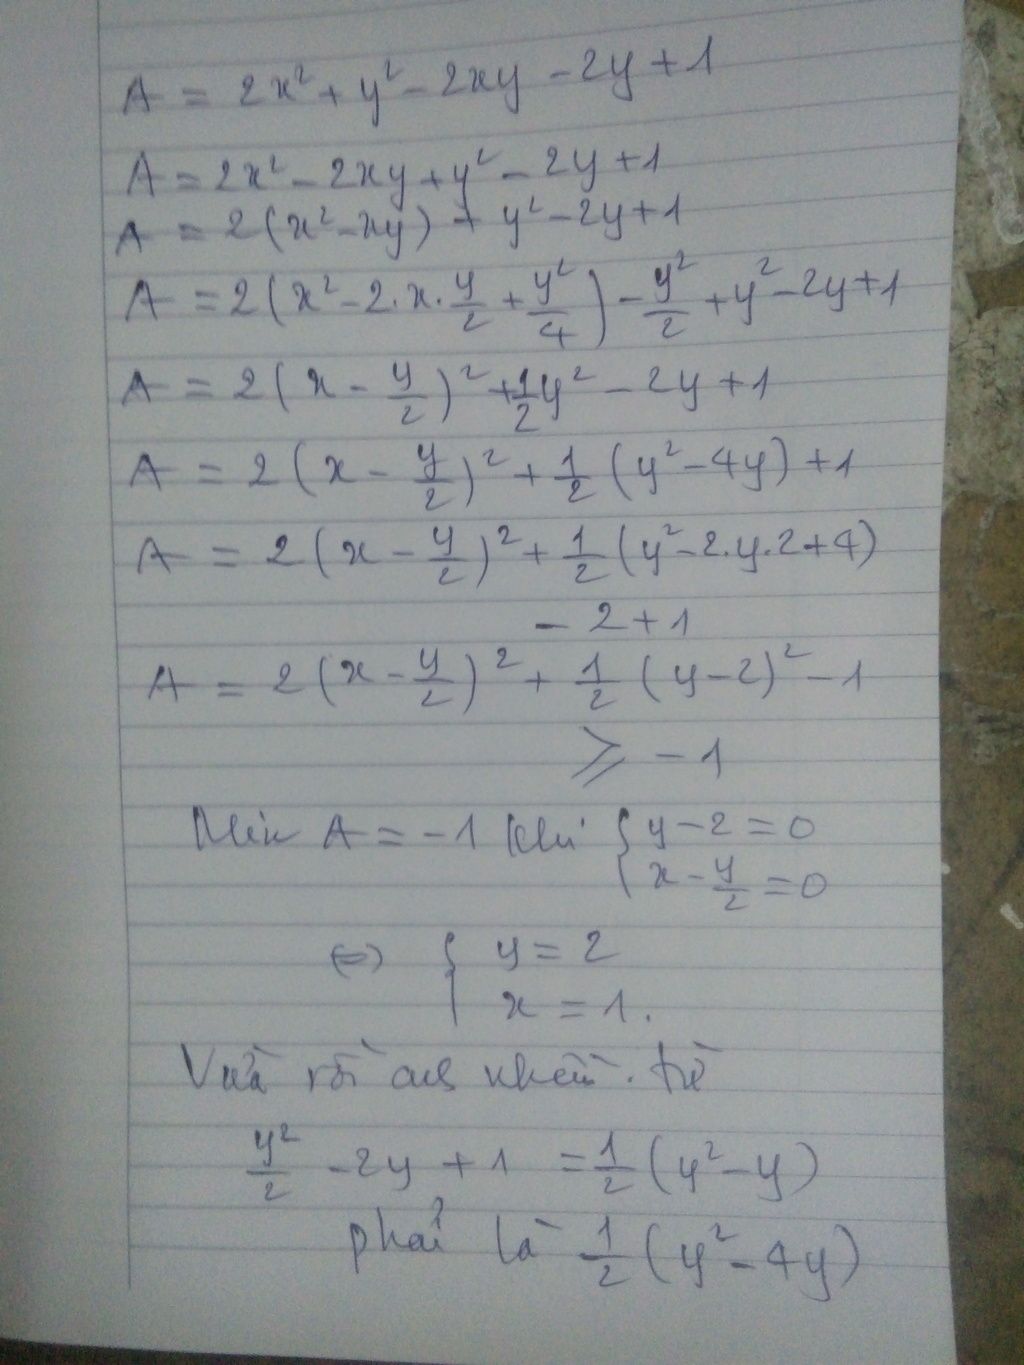 A = 2x² + y² - 2xy - 2y + 1
A = 2x² - 2xy + y² - 2y + 1
A = 2(x² - xy) + y² - 2y + 1
A = 2(x² - 2.x.y/2 + y²/4) - y²/2 + y² - 2y + 1
A = 2(x - y/2)² + 1/2y² - 2y + 1
A = 2(x - y/2)² + 1/2(y² - 4y) + 1
A = 2(x - y/2)² + 1/2(y² - 2.y.2 + 4)
- 2 + 1
A = 2(x - y/2)² + 1/2(y - 2)² - 1
⩾ - 1
Min A = -1 khi { y - 2 = 0
x - y/2 = 0
⇔ { y = 2
x = 1.
Vừa rồi
y²/2 - 2y + 1 = 1/2(y² - y)
phải là 1/2(y² - 4y)